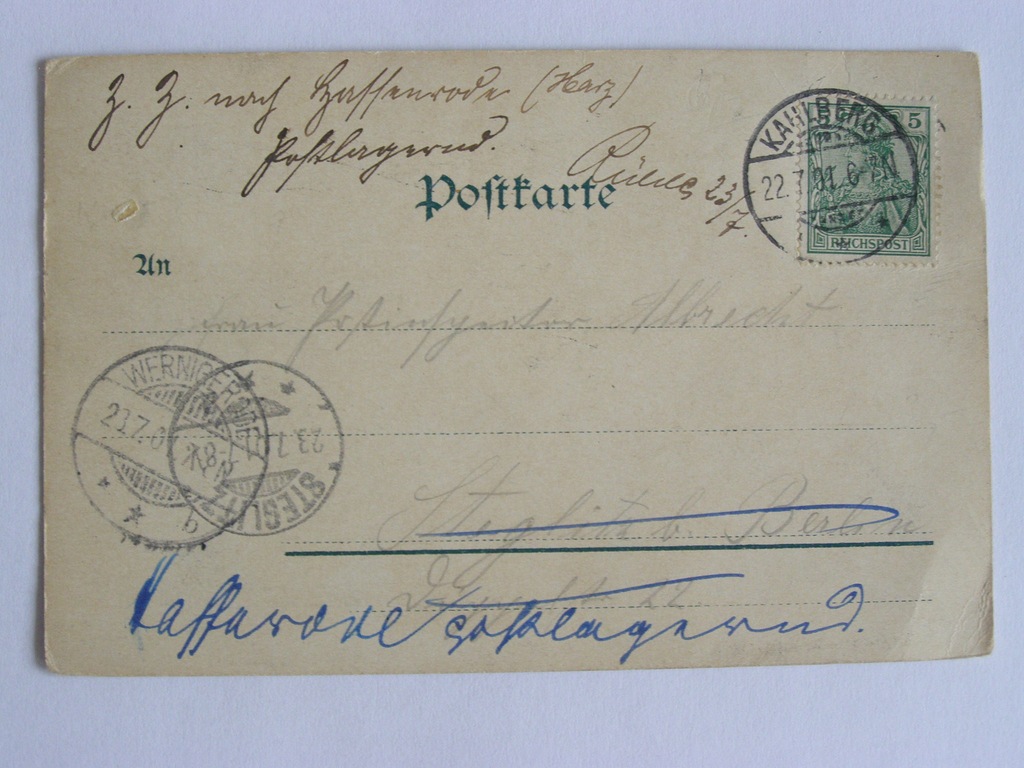 Z. Z. nach Hassenrode (Harz)
Postlagernd.
23/7.
Postkarte
KAHLBERG
22.7.01. 6-7N
5
REICHSPOST
An
Frau Postinspektor Albrecht
WERNIGERODE
23.7.0
8
b
STEGLITZ
23.7
Steglitz b. Berlin
22
Hasserode postlagernd.